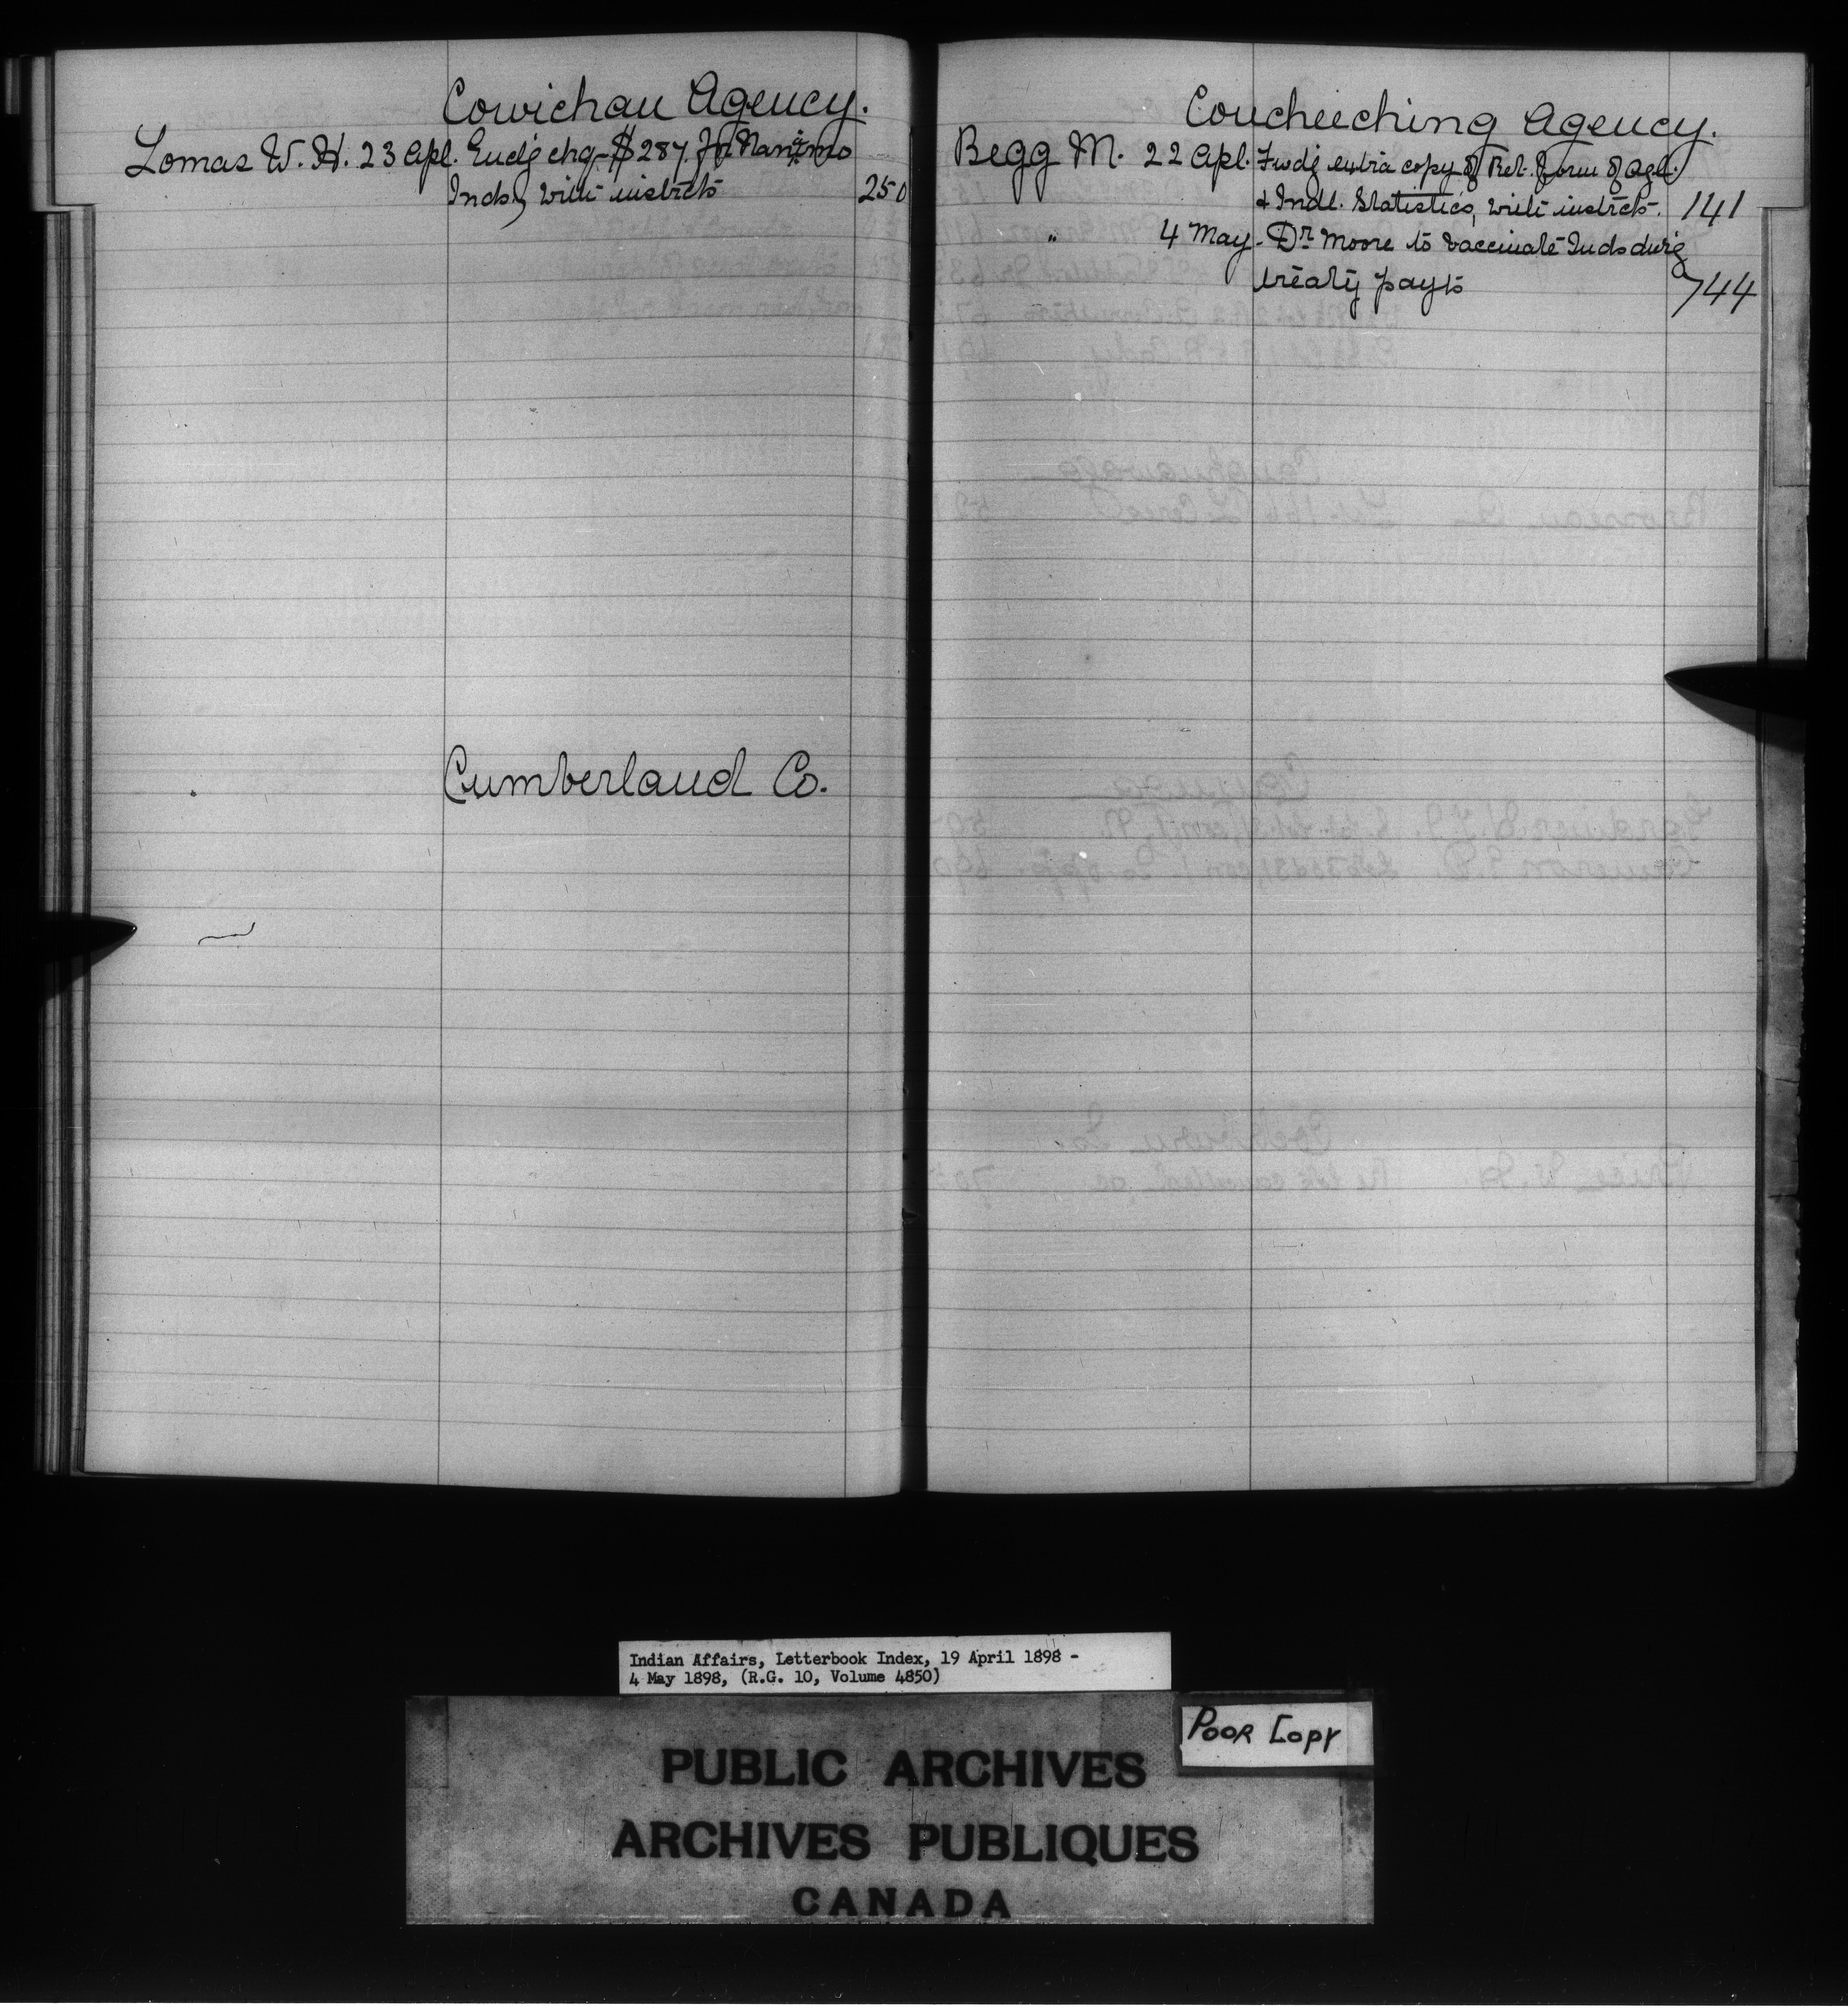 Cowichan Agency.
Lomas W. H. 23 Apl. Encl'g chq. $287. fr. Nanaimo
Inds, with instrcts 250
Cumberland Co.
Coucheeching Agency.
Begg M. 22 Apl. Fwd'g extra copy of Ret. form of Agl.
& Indl. Statistics, with instrcts. 141
" 4 May. Dr. Moore to vaccinate Inds dur'g
treaty payts 744
Indian Affairs, Letterbook Index, 19 April 1898 -
4 May 1898, (R.G. 10, Volume 4850)
POOR COPY
PUBLIC ARCHIVES
ARCHIVES PUBLIQUES
CANADA